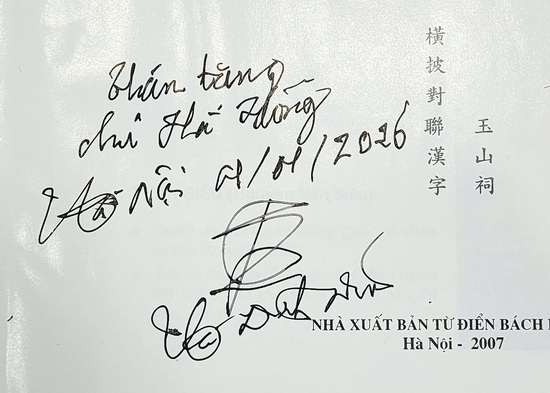 Thân tặng
chú Hà Hồng
Hà Nội 01/01/2026
玉山祠
橫披對聯漢字
NHÀ XUẤT BẢN TỪ ĐIỂN BÁCH
Hà Nội - 2007